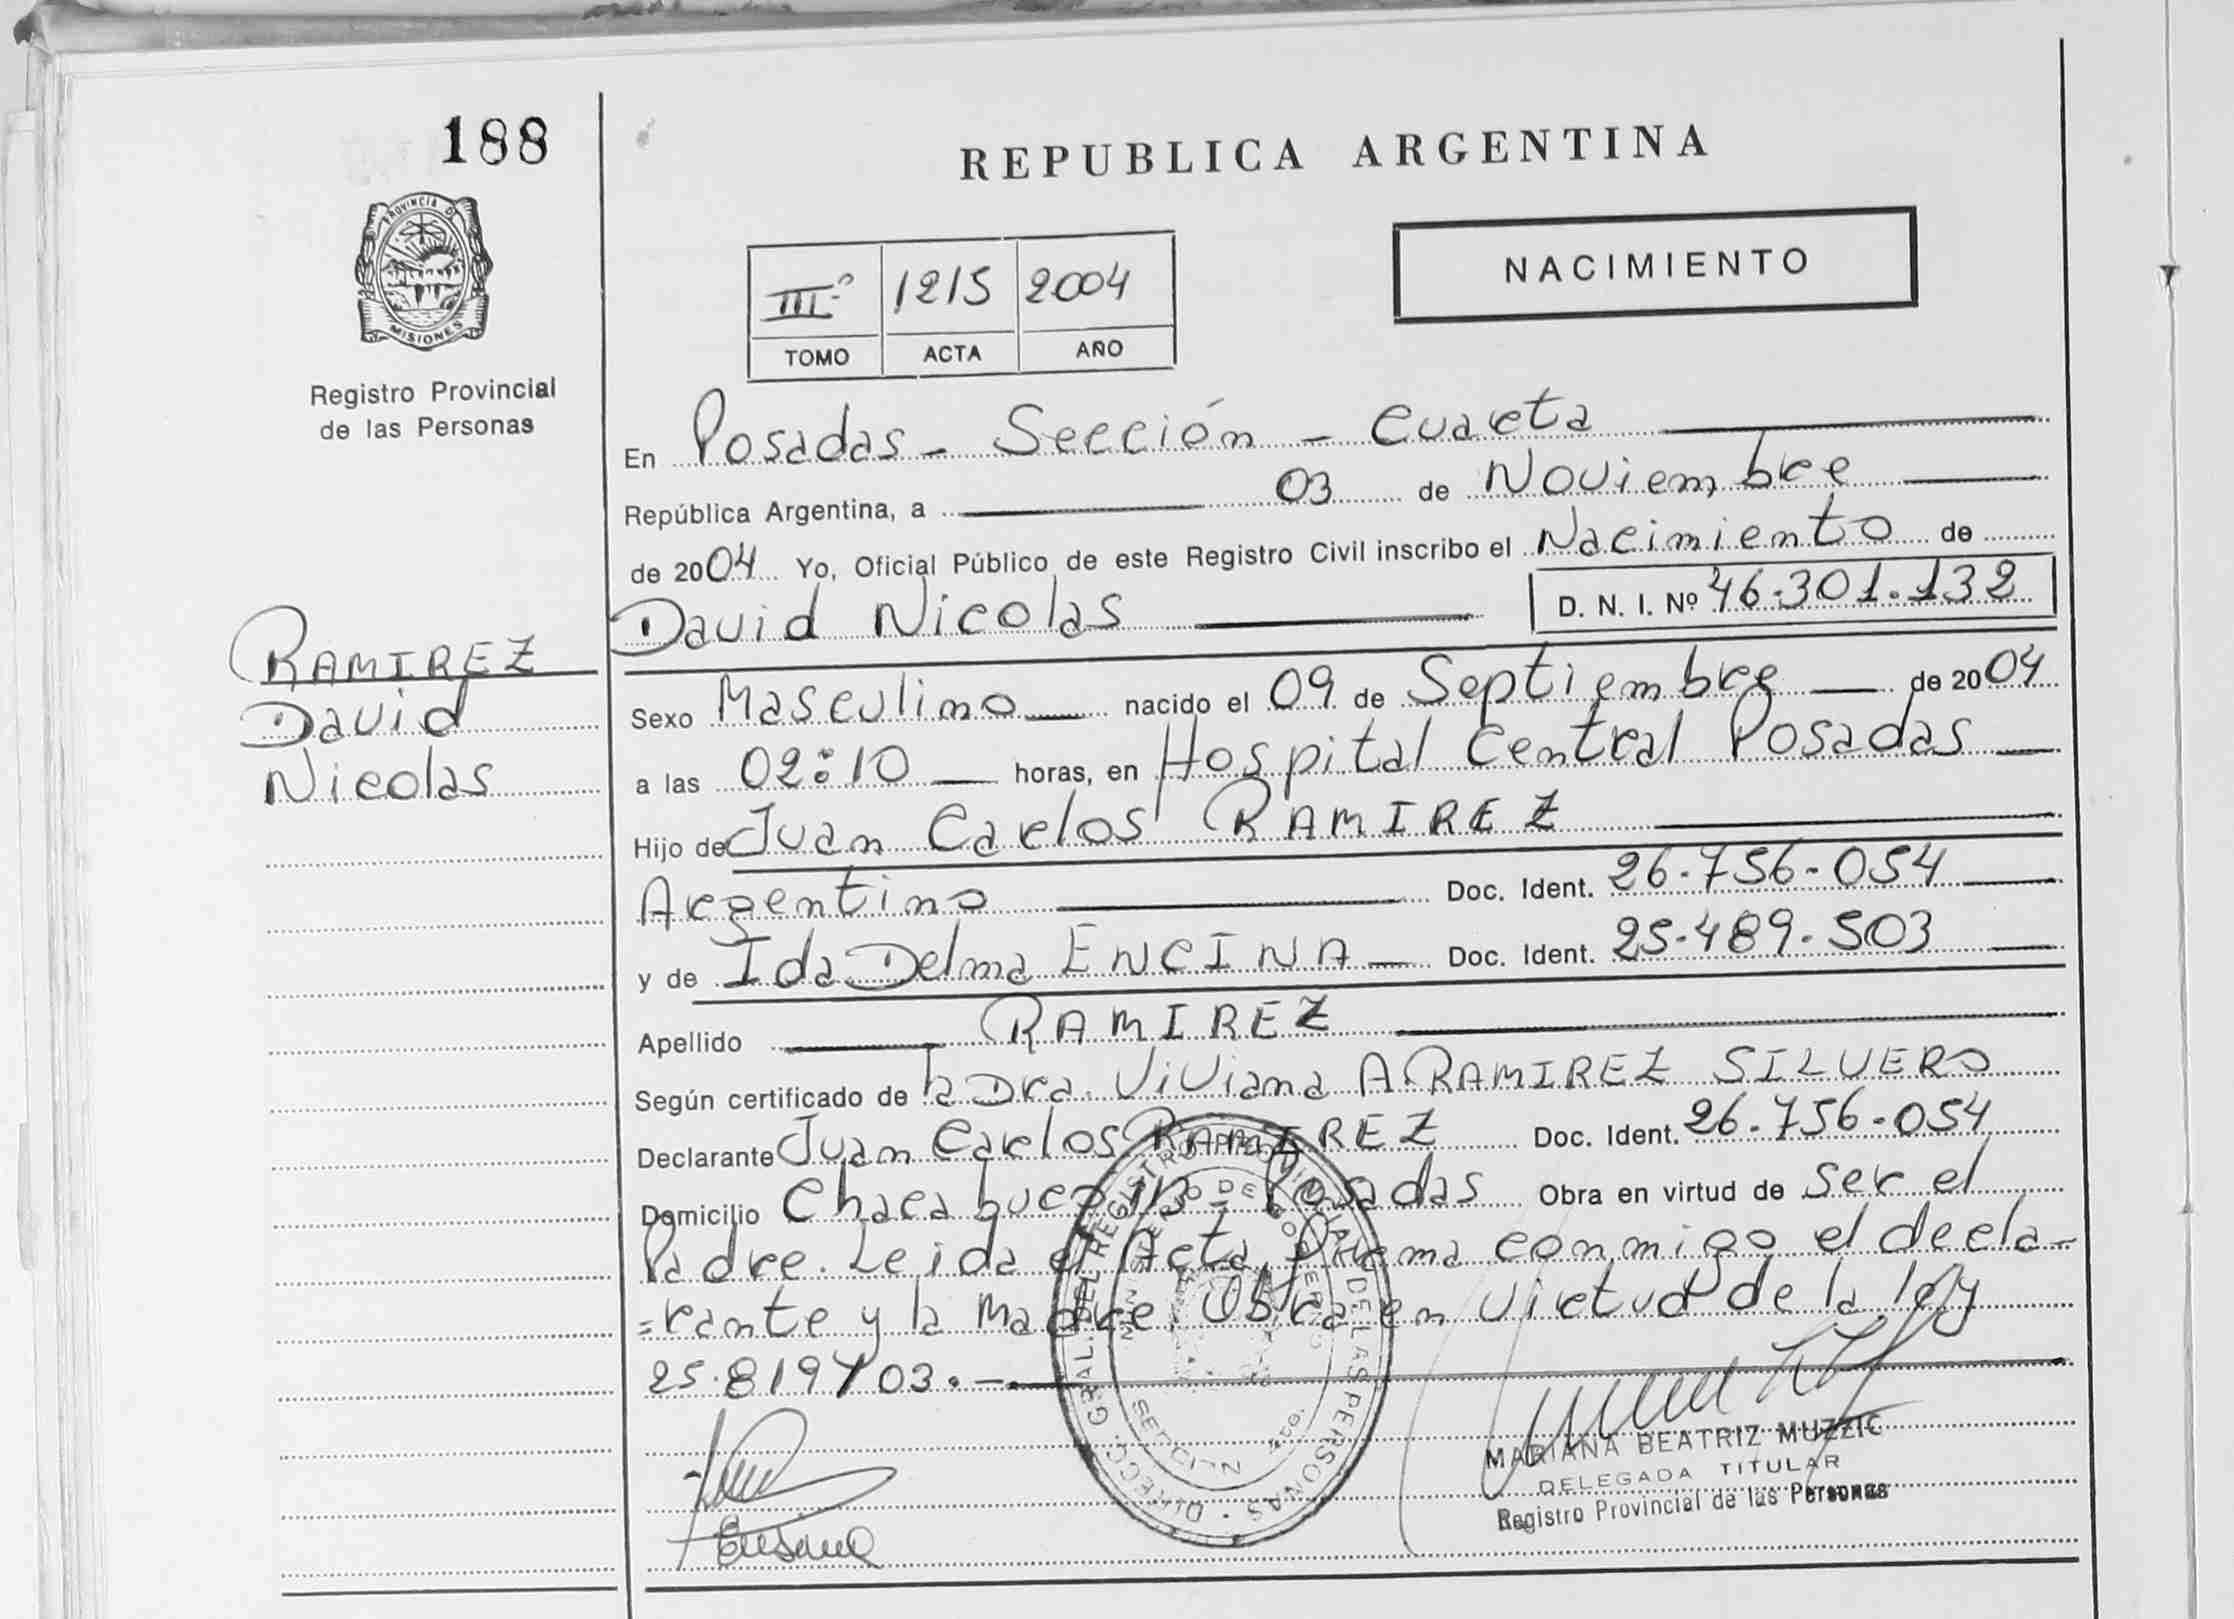 188
PROVINCIA DE
MISIONES
Registro Provincial
de las Personas
RAMIREZ
David
Nicolas
REPUBLICA ARGENTINA
NACIMIENTO
III-º 1215 2004
TOMO ACTA AÑO
En Posadas - Sección - Cuarta
República Argentina, a 03 de Noviembre
de 2004 Yo, Oficial Público de este Registro Civil inscribo el Nacimiento de
David Nicolas D. N. I. Nº 46.301.132
Sexo Masculino nacido el 09 de Septiembre de 2004
a las 02:10 horas, en Hospital Central Posadas
Hijo de Juan Carlos RAMIREZ
Argentino Doc. Ident. 26.756.054
y de Ida Delma ENCINA Doc. Ident. 25.489.503
Apellido RAMIREZ
Según certificado de la Dra. Viviana A. RAMIREZ SILVERO
Declarante Juan Carlos RAMIREZ Doc. Ident. 26.756.054
Domicilio Posadas Obra en virtud de Ser el
Padre. Leida el Acta, Firma conmigo el decla-
=rante y la Madre. Obra en Virtud de la ley
25.819/03.-
DIRECC. GRAL. DEL REGISTRO PROVINCIAL DE LAS PERSONAS
MINISTERIO DE GOBIERNO
MARIANA BEATRIZ MUZZIC
DELEGADA TITULAR
Registro Provincial de las Personas